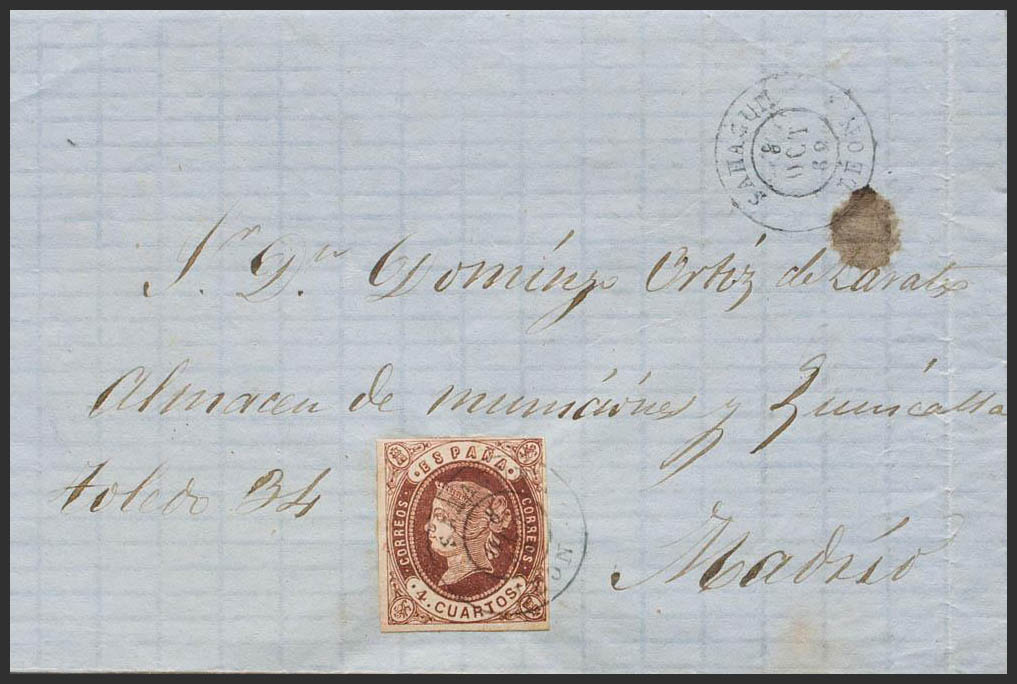 SAHAGUN
LEON
8
OCT
63
Sr. Dn Domingo Ortiz de Zarate
Almacen de municiones y Quincalla
toledo 34
Madrid
ESPAÑA
CORREOS
CORREOS
4. CUARTOS